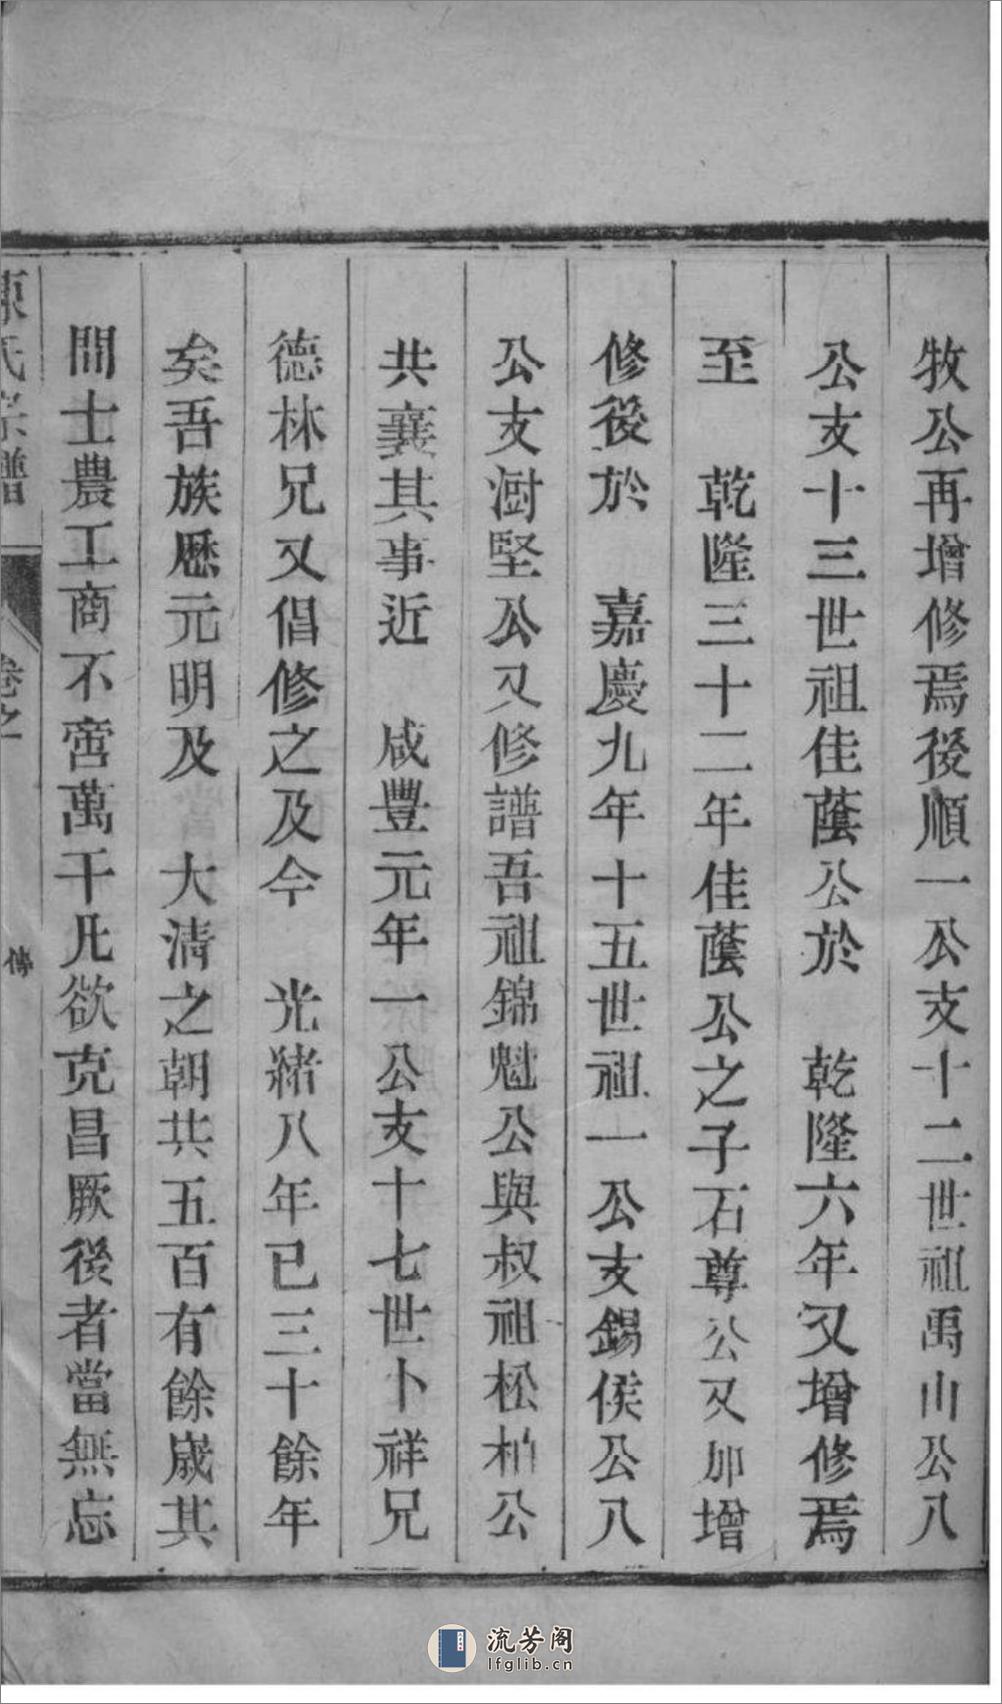 牧公再增修焉後順一公支十二世祖禹山公八
公支十三世祖佳蔭公於　乾隆六年又增修焉
至　乾隆三十二年佳蔭公之子石尊公又加增
修後於　嘉慶九年十五世祖一公支錫侯公八
公支澍堅公又修譜吾祖錦魁公與叔祖松柏公
共襄其事近　咸豐元年一公支十七世卜祥兄
德林兄又倡修之及今　光緒八年已三十餘年
矣吾族歷元明及　大清之朝共五百有餘歲其
間士農工商不啻萬千凡欲克昌厥後者當無忘
氏宗譜
卷之
傳
流芳阁
lfglib.cn